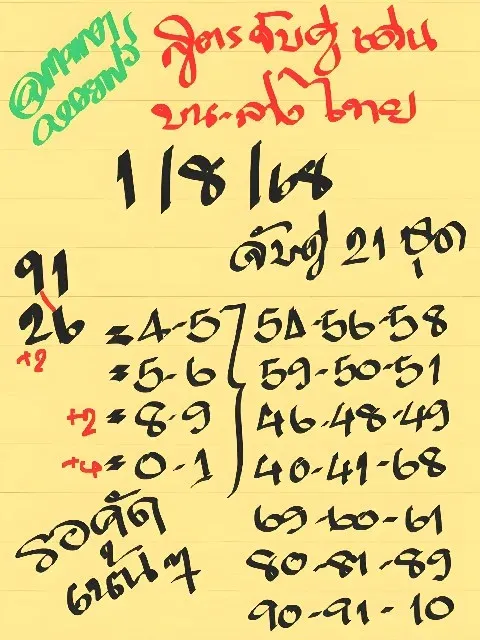 สูตรจับคู่ เด่น
บน-ล่าง ไทย
1/8/68
จับคู่ 21 ชุด
91
26 = 4-5 54-56-58
+2 = 5-6 59-50-51
+2 = 8-9 46-48-49
+4 = 0-1 40-41-68
69-60-61
รอคัด
เน้นๆ
80-81-89
90-91-10